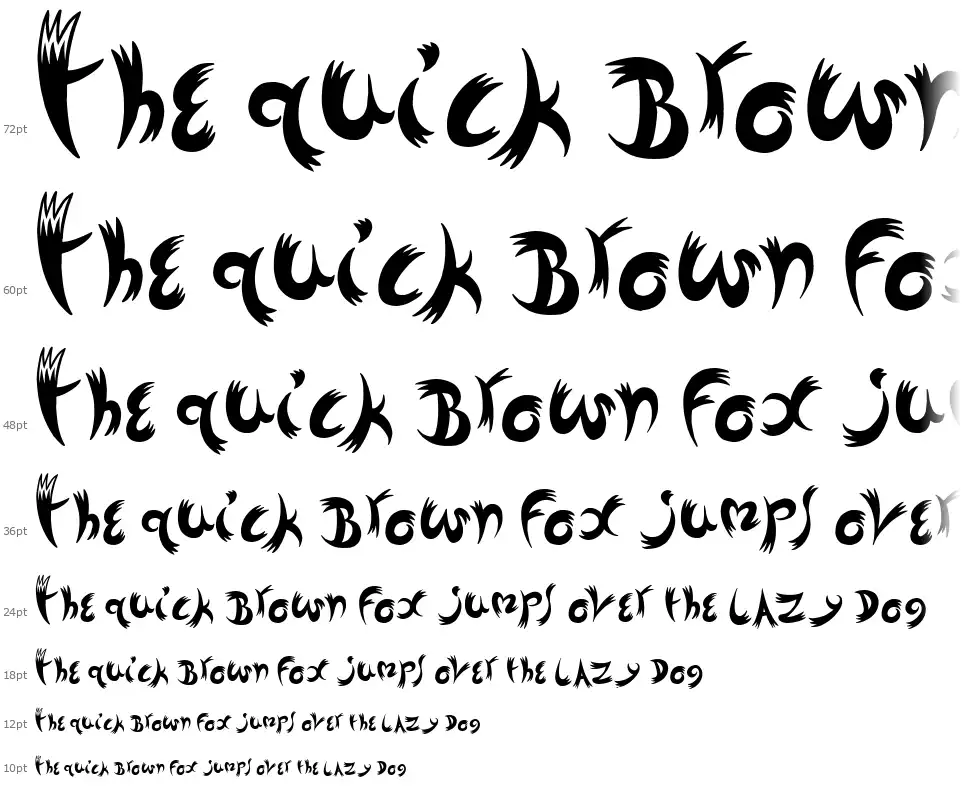 72pt the quick Brown
60pt the quick Brown Fo
48pt the quick Brown Fox ju
36pt the quick Brown Fox jumps over
24pt the quick Brown Fox jumps over the LAZy Dog
18pt the quick Brown Fox jumps over the LAZy Dog
12pt the quick Brown Fox jumps over the LAZy Dog
10pt the quick Brown Fox jumps over the LAZy Dog